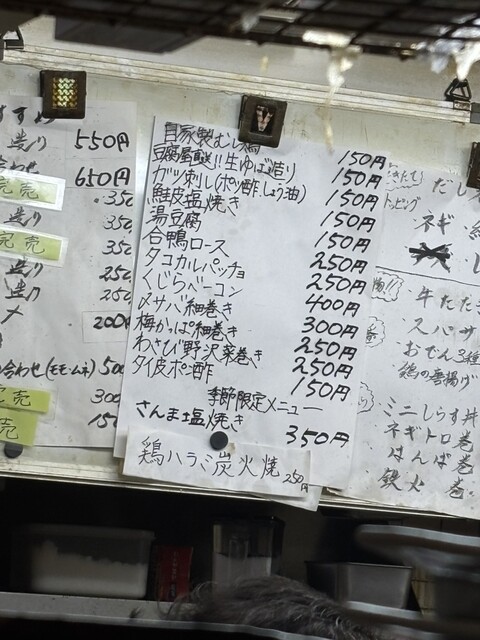 造り 550円
650円
完売
350
造り 350
完売 350
造り 250
造り 250
200
合わせ(モモ・ムネ) 500
完売 300
完売 150
自家製むし鶏 150円
豆腐屋直送!!生ゆば造り 150円
ガツ刺し(ポン酢、しょう油) 150円
鮭皮塩焼き 150円
湯豆腐 150円
合鴨ロース 250円
タコカルパッチョ 250円
くじらベーコン 400円
〆サバ細巻き 300円
梅かっぱ細巻き 250円
わさび野沢菜巻き 250円
タイ皮ポン酢 150円
季節限定メニュー
さんま塩焼き 350円
鶏ハラミ炭火焼 250円
だし
トッピング
ネギ
牛たた
スパサ
おでん3種
鶏の唐揚げ
ミニしらす丼
ネギトロ巻
鉄火巻